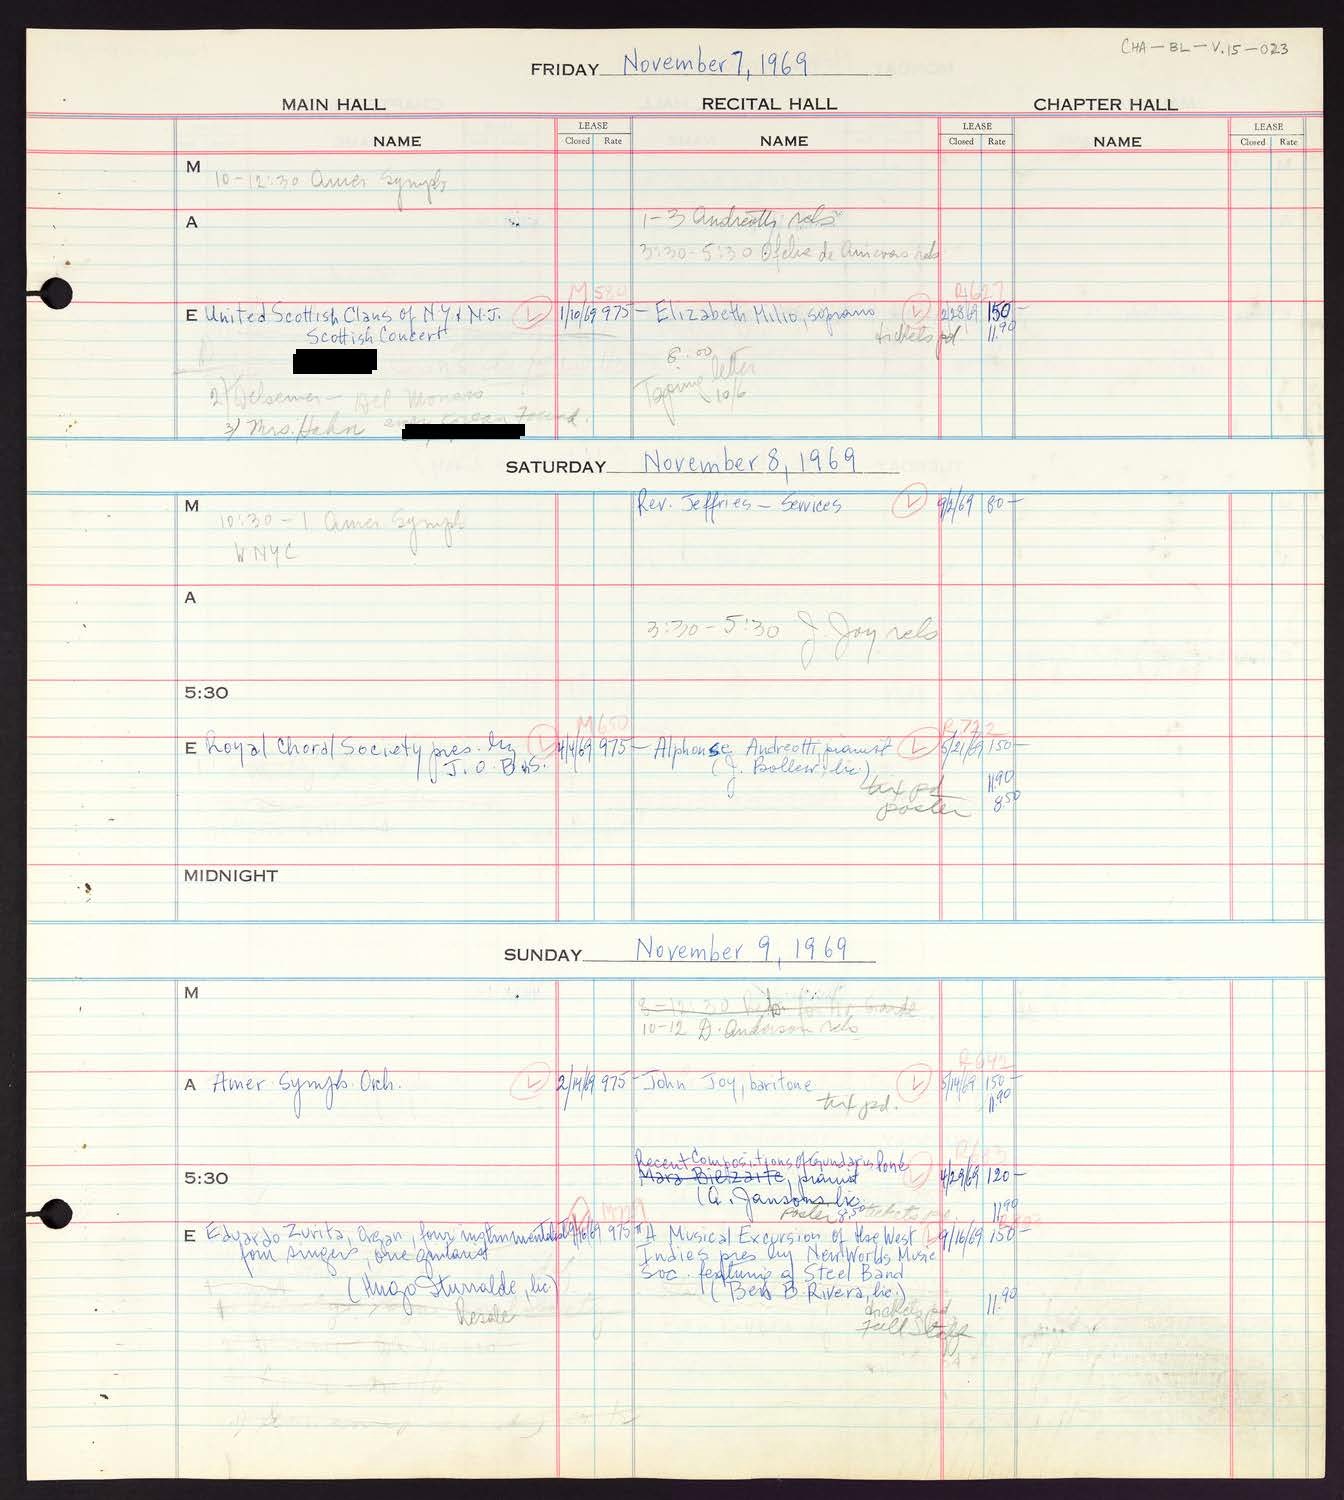 CHA-BL-V.15-023
FRIDAY November 7, 1969
MAIN HALL RECITAL HALL CHAPTER HALL
NAME LEASE Closed Rate NAME LEASE Closed Rate NAME LEASE Closed Rate
M 10-12:30 Amer Symph
A 1-3 Andreotti rels
3:30-5:30 Ofelia de
M 580 R627
E United Scottish Clans of N.Y & N.J. 1/10/69 975- Elizabeth Milio, soprano 2/28/69 150-
Scottish Concert tickets pd. 11.90
8:00
Taping letter
10/6
2) Delsener - Del Monaco
3) Mrs. Hahn
SATURDAY November 8, 1969
M Rev. Jeffries - Services 9/2/69 80-
10:30-1 Amer Symph
WNYC
A
3:30-5:30 J. Joy rels
5:30
M650 R792
E Royal Choral Society pres. by 4/4/69 975- Alphonse Andreotti, pianist 5/21/69 150-
J. O. B S. (J. Bollew, lic.)
tix pd 11.90
poster 8.50
MIDNIGHT
SUNDAY November 9, 1969
M
8-12:30
10-12 D. Anderson rels
R642
A Amer Symph. Orch. 2/14/69 975- John Joy, baritone 5/14/69 150-
tix pd. 11.90
Recent Compositions of Gundaris Poné
5:30 Mara Bielzarte, pianist 4/29/69 120-
(A. Jansons, lic
Poster 8.50 tickets pd. 11.90
E Eduardo Zurita, Organ, four instrumentalists 975- A Musical Excursion of the West 9/16/69 150-
four singers, one guitarist Indies pres by New Worlds Music
Soc. featuring a Steel Band
(Hugo Iturralde, lic) (Ben B. Rivera, lic.)
Resale tickets pd 11.90
Full Staff